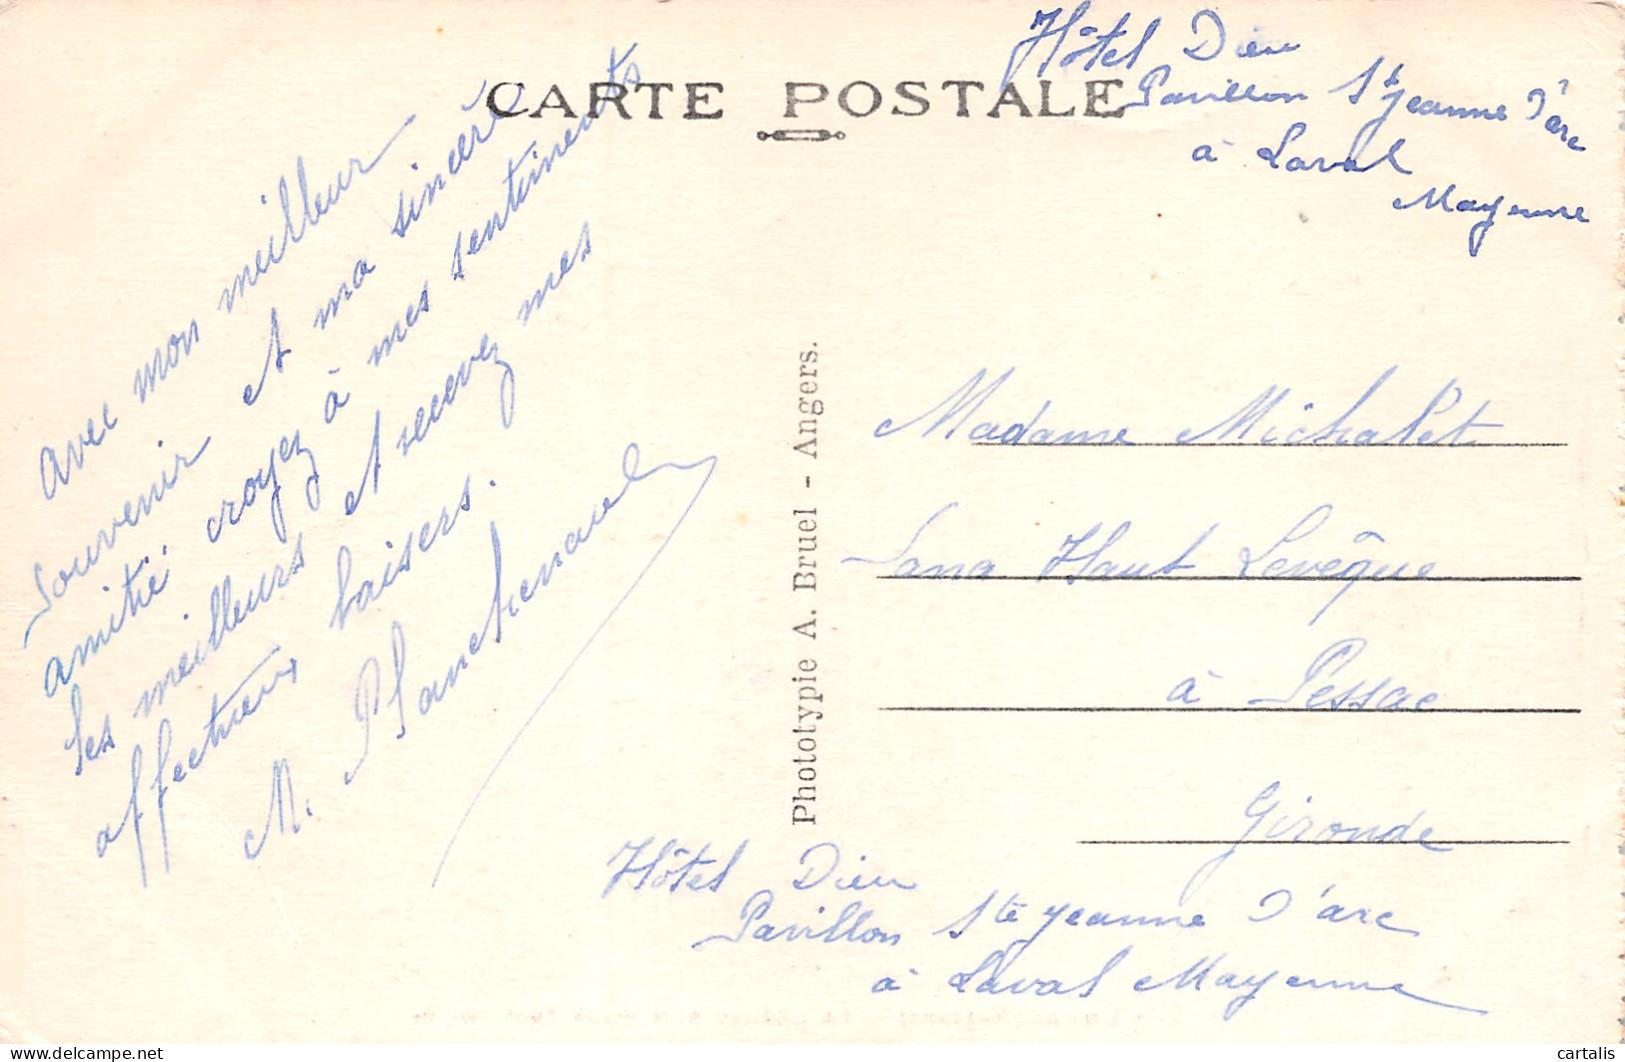 Hôtel Dieu
Pavillon Ste Jeanne D'arc
à Laval
Mayenne
CARTE POSTALE
avec mon meilleur
souvenir et ma sincère
amitié. croyez à mes sentiments
les meilleurs et recevez mes
affectueux baisers.
M. Planchenault
Phototypie A. Bruel - Angers.
Madame Michalet
Sana Haut Levêque
à Pessac
Gironde
Hôtel Dieu
Pavillon Ste Jeanne D'arc
à Laval Mayenne
cartalis
delcampe.com